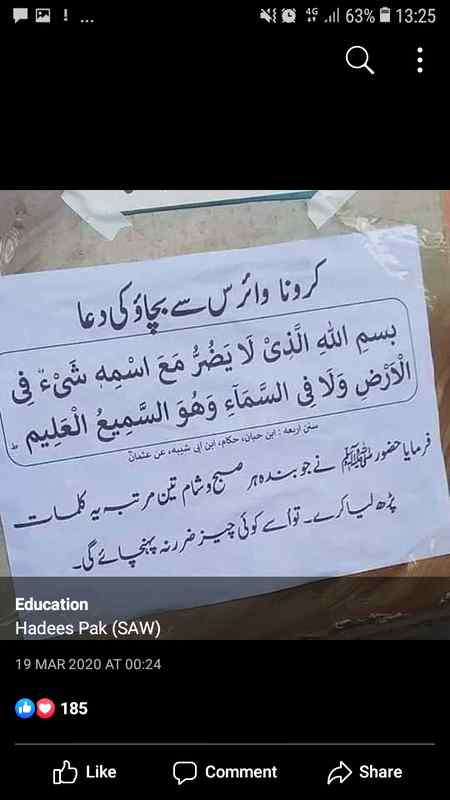 4G 63% 13:25
کرونا وائرس سے بچاؤ کی دعا
بِسمِ اللهِ الَّذِیْ لَا یَضُرُّ مَعَ اسْمِهٖ شَیْءٌ فِی
الْاَرْضِ وَلَا فِی السَّمَآءِ وَهُوَ السَّمِیعُ الْعَلِیم ط
سنن اربعہ : ابن حبان، حکام، ابن ابی شیبہ، عن عثمانؓ
فرمایا حضور ﷺ نے جو بندہ ہر صبح و شام تین مرتبہ یہ کلمات
پڑھ لیا کرے۔ تو اُسے کوئی چیز ضرر نہ پہنچائے گی۔
Education
Hadees Pak (SAW)
19 MAR 2020 AT 00:24
185
Like Comment Share